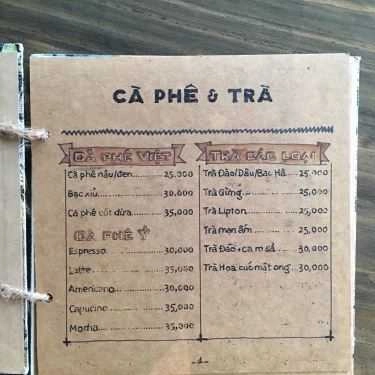 CÀ PHÊ & TRÀ
CÀ PHÊ VIỆT
Cà phê nâu/đen.....25,000
Bạc xỉu.....30,000
Cà phê cốt dừa.....35,000
CÀ PHÊ Ý
Espresso.....30,000
Latte.....35,000
Americano.....30,000
Capucino.....35,000
Mocha.....35,000
TRÀ CÁC LOẠI
Trà Đào/Dâu/Bạc Hà.....25,000
Trà Gừng.....25,000
Trà Lipton.....25,000
Trà mạn ấm.....25,000
Trà Đào + cam sả.....30,000
Trà Hoa cúc mật ong.....30,000
-1-